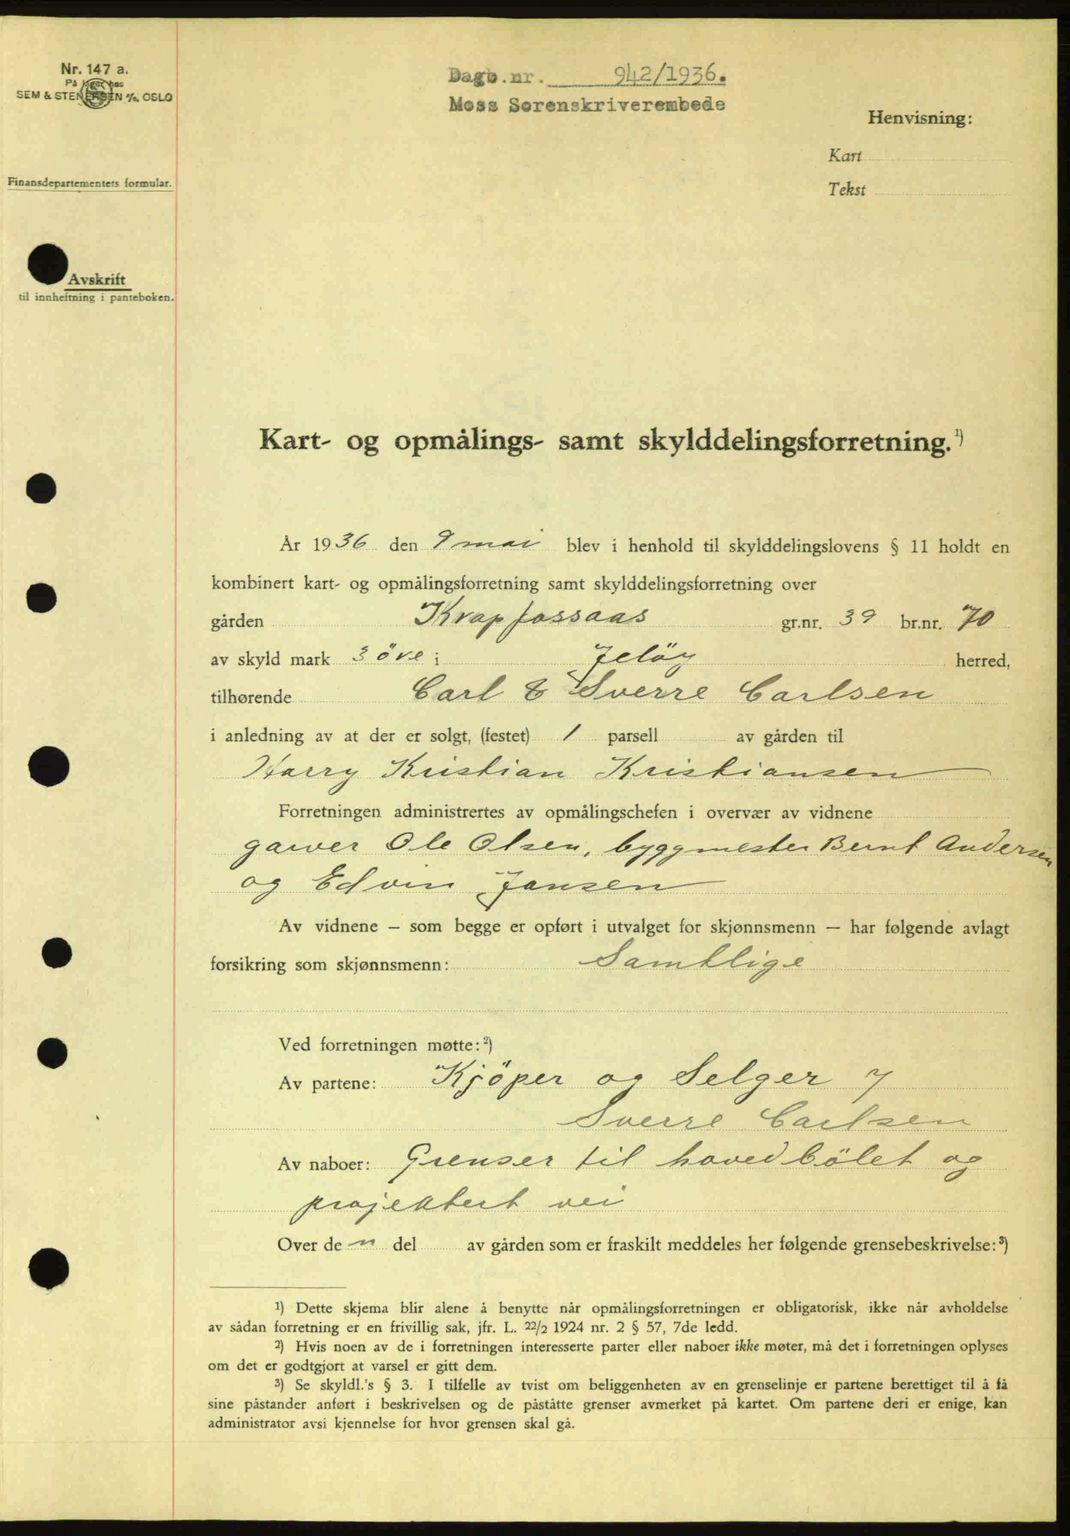 Nr. 147 a.
På lager hos
SEM & STENERSEN A/S, OSLO
Finansdepartementets formular.
Avskrift
til innheftning i panteboken.
Dagb.nr. 942/1936.
Moss Sorenskriverembede
Henvisning:
Kart
Tekst
Kart- og opmålings- samt skylddelingsforretning.¹)
År 1936 den 9 mai blev i henhold til skylddelingslovens § 11 holdt en
kombinert kart- og opmålingsforretning samt skylddelingsforretning over
gården Krapfossaas gr.nr. 39 br.nr. 70
av skyld mark 3 öre i Jelöy herred,
tilhørende Carl & Sverre Carlsen
i anledning av at der er solgt, (festet) 1 parsell av gården til
Harry Kristian Kristiansen
Forretningen administrertes av opmålingschefen i overvær av vidnene
garver Ole Olsen, byggmester Bernt Andersen
og Edvin Jansen
Av vidnene – som begge er opført i utvalget for skjønnsmenn – har følgende avlagt
forsikring som skjønnsmenn: Samtlige
Ved forretningen møtte:²)
Av partene: Kjöper og Selger
Sverre Carlsen
Av naboer: Grenser til hovedbölet og
projektert vei
Over de n del av gården som er fraskilt meddeles her følgende grensebeskrivelse:³)
¹) Dette skjema blir alene å benytte når opmålingsforretningen er obligatorisk, ikke når avholdelse
av sådan forretning er en frivillig sak, jfr. L. 22/2 1924 nr. 2 § 57, 7de ledd.
²) Hvis noen av de i forretningen interesserte parter eller naboer ikke møter, må det i forretningen oplyses
om det er godtgjort at varsel er gitt dem.
³) Se skyldl.'s § 3. I tilfelle av tvist om beliggenheten av en grenselinje er partene berettiget til å få
sine påstander anført i beskrivelsen og de påståtte grenser avmerket på kartet. Om partene deri er enige, kan
administrator avsi kjennelse for hvor grensen skal gå.